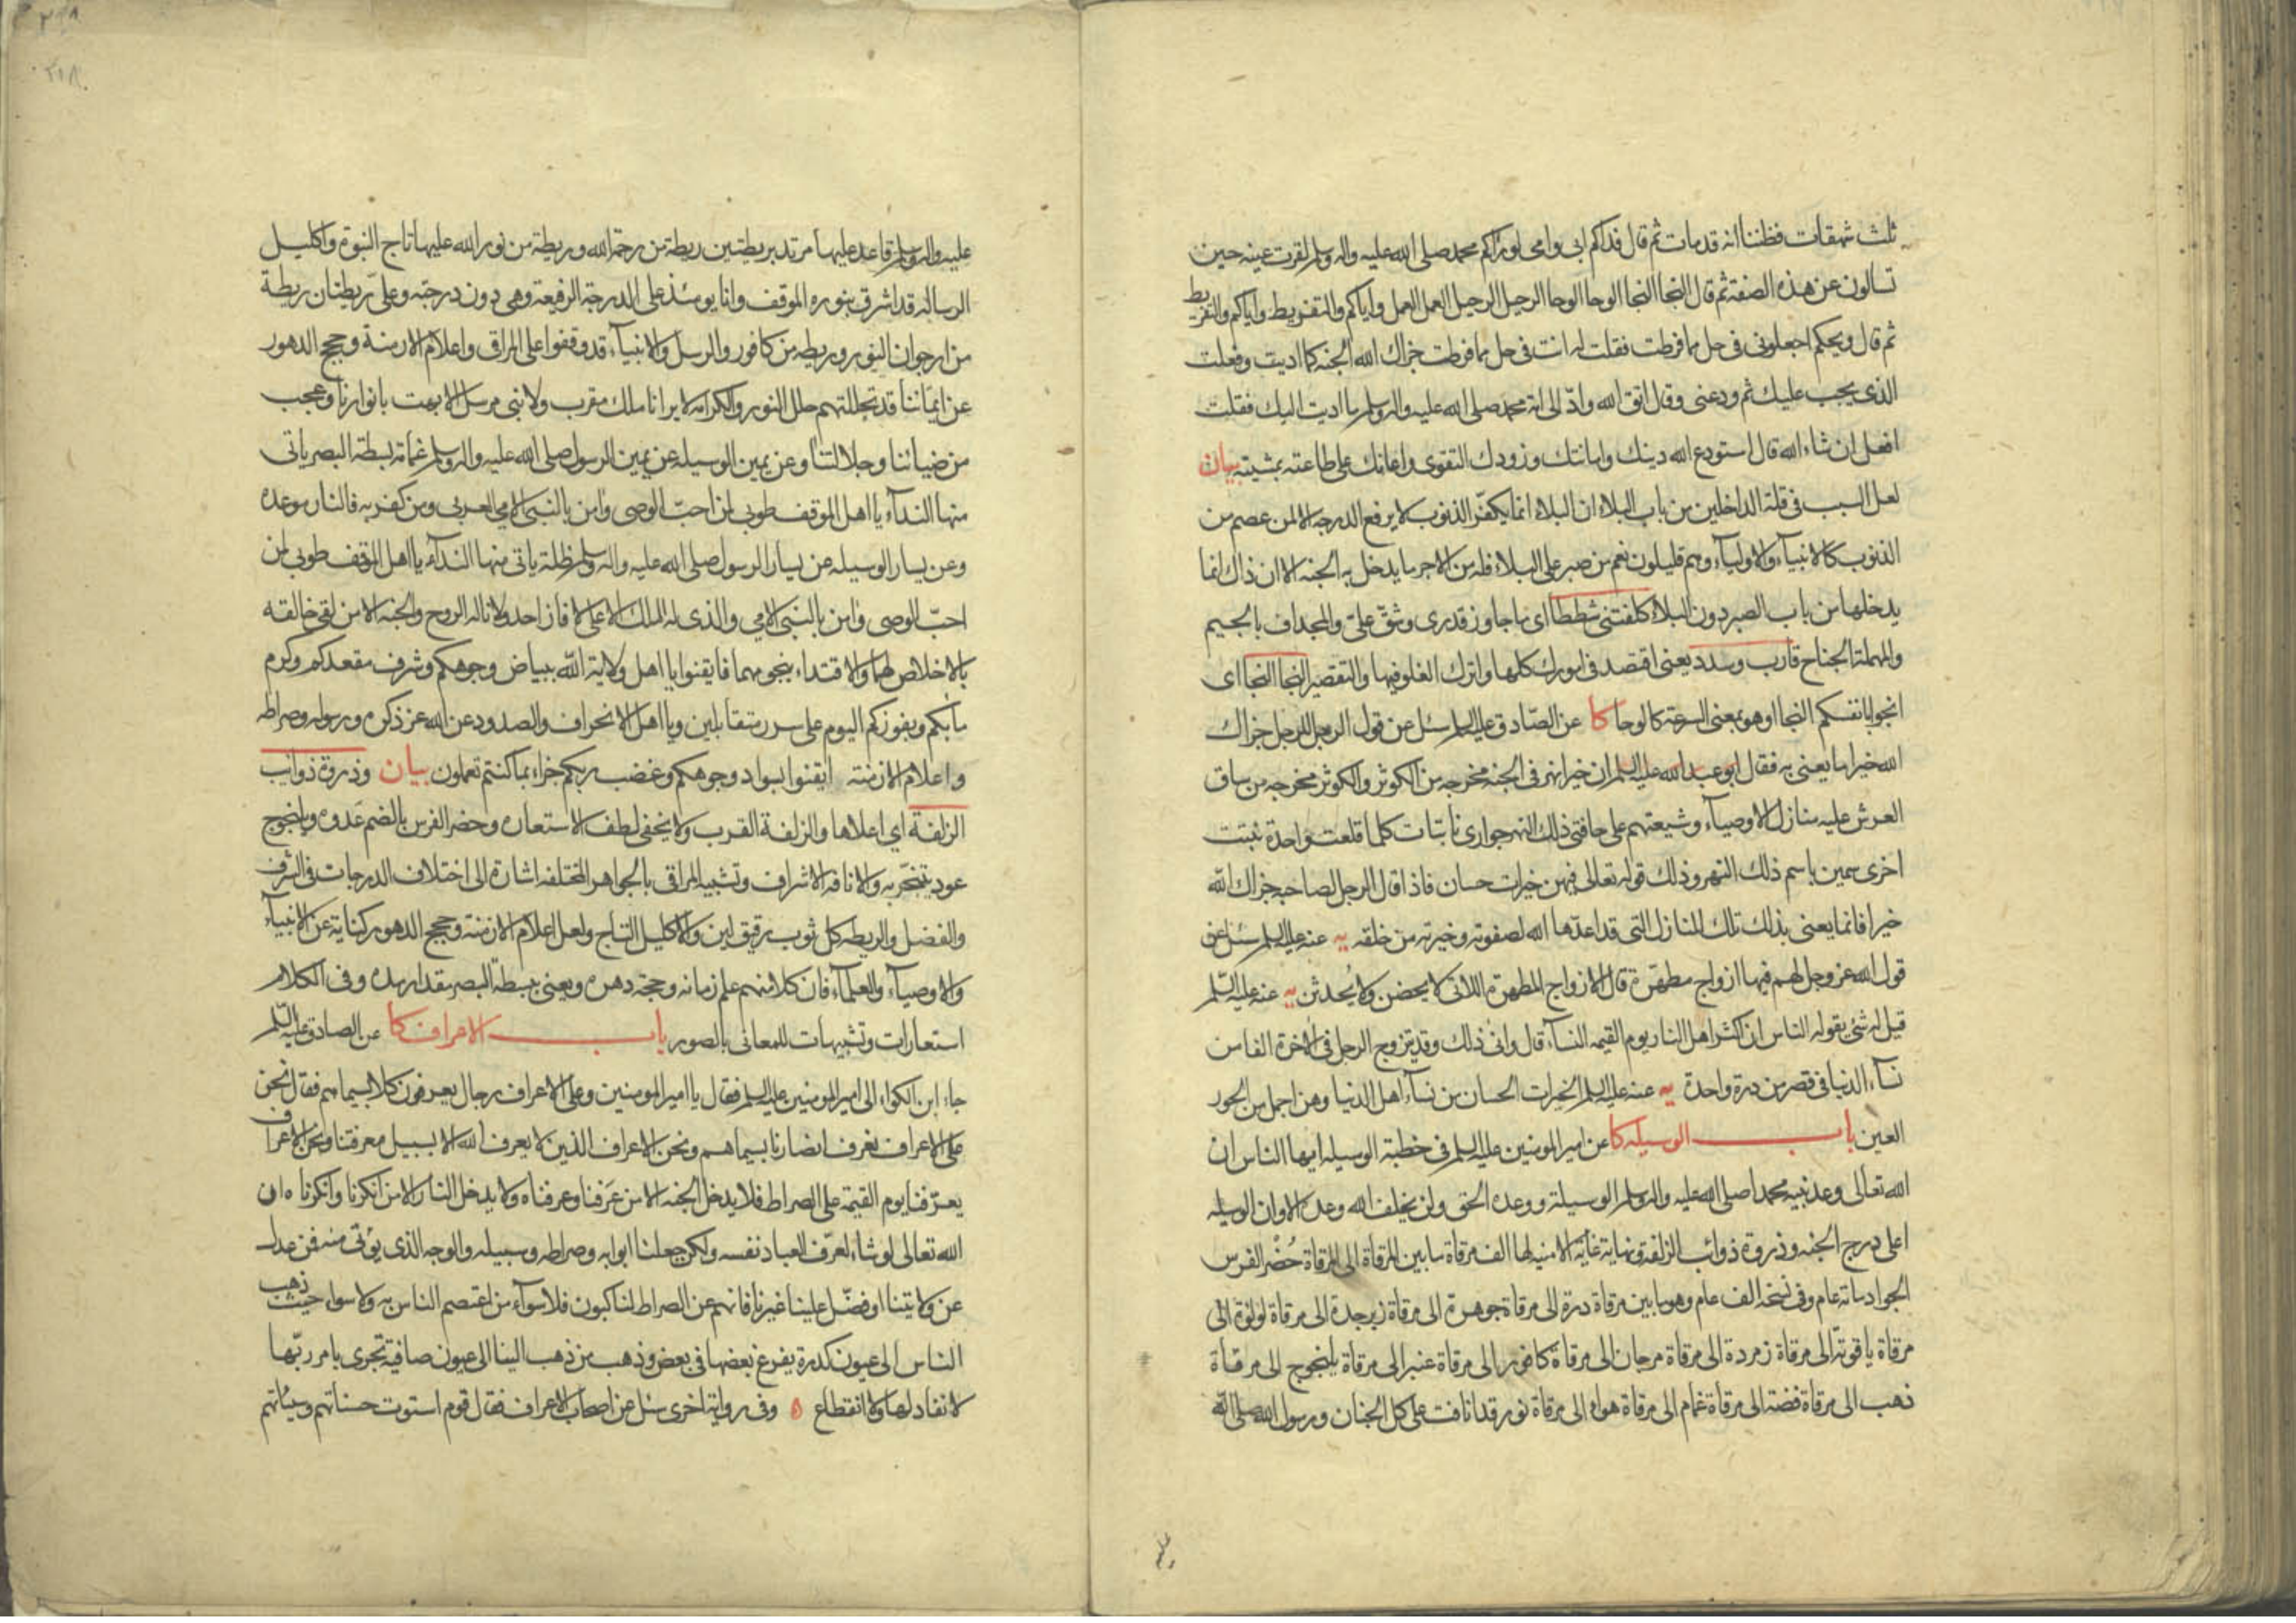 ثلث شهقات فظننا انه قد مات ثم قال فداكم ابى وامى لو رآكم محمد صلى الله عليه واله وسلم لقرت عينه حين
تسألون عن هذه الصفة ثم قال النجا النجا الوحا الوحا الرحيل الرحيل العمل العمل واياكم والتفريط واياكم والتفريط
ثم قال ويحكم اجعلونى فى حل مما فرطت فقلت له انت فى حل مما فرطت جزاك الله الجنه كما اديت وفعلت
الذى يجب عليك ثم ودعنى وقال اتق الله وادّ الى امة محمد صلى الله عليه واله وسلم ما اديت اليك فقلت
افعل ان شاء الله قال استودع الله دينك وامانتك وزودك التقوى واعانك على طاعته بمشيته بيان
لعل السبب فى قلة الداخلين من باب البلاء ان البلاء انما يكفّر الذنوب لا يرفع الدرجه الا لمن عصم من
الذنوب كالانبيآء والاوليآء وهم قليلون نعم من صبر على البلاء فله من الاجر ما يدخل به الجنه الا ان ذاك انما
يدخلها من باب الصبر دون البلاء كلفتنى شططا اى ما جاوز قدرى وشقّ علىّ والمجداف بالجيم
والمهملة الجناح قارب وسدد يعنى اقتصد فى امورك كلها واترك الغلو فيها والتقصير النجا النجا اى
انجوا بانفسكم النجا او هو بمعنى السرعة كالوحا كا عن الصّادق عليه السلم سئل عن قول الرجل للرجل جزاك
الله خيرا ما يعنى به فقال ابو عبد الله عليه السلم ان خيرا نهر فى الجنه مخرجه من الكوثر والكوثر مخرجه من ساق
العرش عليه منازل الاوصيآء وشيعتهم على حافتى ذلك النهر جوارى نابتات كلما قلعت واحدة نبتت
اخرى سمين باسم ذلك النهر وذلك قوله تعالى فيهن خيرات حسان فاذا قال الرجل لصاحبه جزاك الله
خيرا فانما يعنى بذلك تلك المنازل التى قد اعدّها الله لصفوته وخيرته من خلقه يه عنه عليه السلم سئل عن
قول الله عز وجل لهم فيها ازواج مطهّرة قال الازواج المطهرة اللاتى لا يحضن ولا يُحدثن يه عنه عليه السّلم
قيل له شئ يقوله الناس ان اكثر اهل النار يوم القيمه النسآء قال وانى ذلك وقد يتزوج الرجل فى الاخرة الفا من
نسآء الدنيا فى قصر من درة واحدة يه عنه عليه السلم الخيرات الحسان من نسآء اهل الدنيا وهن اجمل من الحور
العين باب الوسيله كا عن امير المومنين عليه السلم فى خطبة الوسيله ايها الناس ان
الله تعالى وعد نبيه محمدا صلى الله عليه واله وسلم الوسيلة ووعده الحق ولن يخلف الله وعده الا وان الوسيله
اعلى درج الجنه وذروة ذوائب الزلفة ونهاية غاية الامنيه لها الف مرقاة ما بين المرقاة الى المرقاة حُضْر الفرس
الجواد ماية عام وفى نسخه الف عام وهو ما بين مرقاة درة الى مرقاة جوهرة الى مرقاة زبرجدة الى مرقاة لولؤة الى
مرقاة ياقوتة الى مرقاة زمردة الى مرقاة مرجان الى مرقاة كافور الى مرقاة عنبر الى مرقاة يلنجوج الى مرقاة
ذهب الى مرقاة فضة الى مرقاة غمام الى مرقاة هواء الى مرقاة نور قد انافت على كل الجنان ورسول الله صلى الله
عليه
عليه واله وسلم قاعد عليها مرتد بريطتين ريطة من رحمة الله وريطة من نور الله عليها تاج النبوة واكليل
الرساله قد اشرق بنوره الموقف وانا يومئذ على الدرجة الرفيعة وهى دون درجته وعلىّ ريطتان ريطة
من ارجوان النور وريطه من كافور والرسل والانبيآء قد وقفوا على المراقى واعلام الازمنة وحجج الدهور
عن ايماننا قد تجللتهم حلل النور والكرامه لا يرانا ملك مقرب ولا نبى مرسل الا بهت بانوارنا وعجب
من ضيائنا وجلالتنا وعن يمين الوسيله عن يمين الرسول صلى الله عليه واله وسلم غمامة بسطة البصر ياتى
منها الندآء يا اهل الموقف طوبى لمن احبّ الوصى وامن بالنبى الامى العربى ومن كفر به فالنار موعده
وعن يسار الوسيله عن يسار الرسول صلى الله عليه واله وسلم ظلة ياتى منها الندآء يا اهل الموقف طوبى لمن
احبّ الوصى وامن بالنبى الامى والذى له الملك الاعلى لا فاز احد ولا ناله الروح والجنه الا من لقى خالقه
بالاخلاص لهما والاقتداء بنجومهما فايقنوا يا اهل ولاية الله ببياض وجوهكم وشرف مقعدكم وكرم
مآبكم وبفوزكم اليوم على سرر متقابلين ويا اهل الانحراف والصدود عن الله عز ذكره ورسوله وصراطه
واعلام الازمنة ايقنوا بسواد وجوهكم وغضب ربكم جزاء بما كنتم تعملون بيان وذروة ذوائب
الزلفة اى اعلاها والزلفة القرب ولا يخفى لطف الاستعاره وحضر الفرس بالضم عَدوه ويلنجوج
عود يتبخّر به والانافه الاشراف وتشبيه المراقى بالجواهر المختلفه اشارة الى اختلاف الدرجات فى الشرف
والفضل والريطه كل ثوب رقيق لين والاكليل التاج ولعل اعلام الازمنة وحجج الدهور كناية عن الانبيآء
والاوصيآء والعلمآء فان كلا منهم علم زمانه وحجة دهره ويعنى ببسطة البصر مقدار مده وفى الكلام
استعارات وتشبيهات للمعانى بالصور باب الاعراف كا عن الصادق عليه السّلم
جاء ابن الكواء الى امير المومنين عليه السلم فقال يا امير المومنين وعلى الاعراف رجال يعرفون كلا بسيماهم فقال نحن
على الاعراف نعرف انصارنا بسيماهم ونحن الاعراف الذين لا يعرف الله الا بسبيل معرفتنا ونحن الاعراف
يعرّفنا يوم القيمة على الصراط فلا يدخل الجنه الا من عَرَفنا وعرفناه ولا يدخل النار الا من انكرنا وانكرناه ان
الله تعالى لو شاء لعرّف العباد نفسه ولكن جعلنا ابوابه وصراطه وسبيله والوجه الذى يؤتى منه فمن عدل
عن ولايتنا او فضّل علينا غيرنا فانهم عن الصراط لناكبون فلا سوآء من اعتصم الناس به ولا سواء حيث ذهب
الناس الى عيون كدرة يفرغ بعضها فى بعض وذهب من ذهب الينا الى عيون صافية تجرى بامر ربّها
لا نفاد لها ولا انقطاع ه وفى رواية اخرى سئل عن اصحاب الاعراف فقال قوم استوت حسناتهم وسيئاتهم